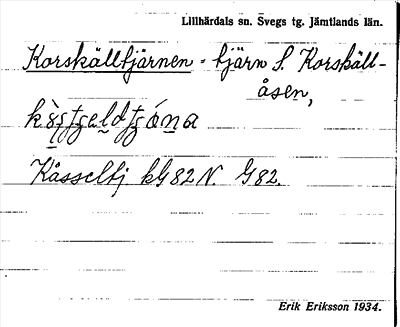 Lillhärdals sn. Svegs tg. Jämtlands län.
Korskälltjärnen - tjärn S. Korskäll-
åsen,
Kåsseltj kG82N. G82.
Erik Eriksson 1934.